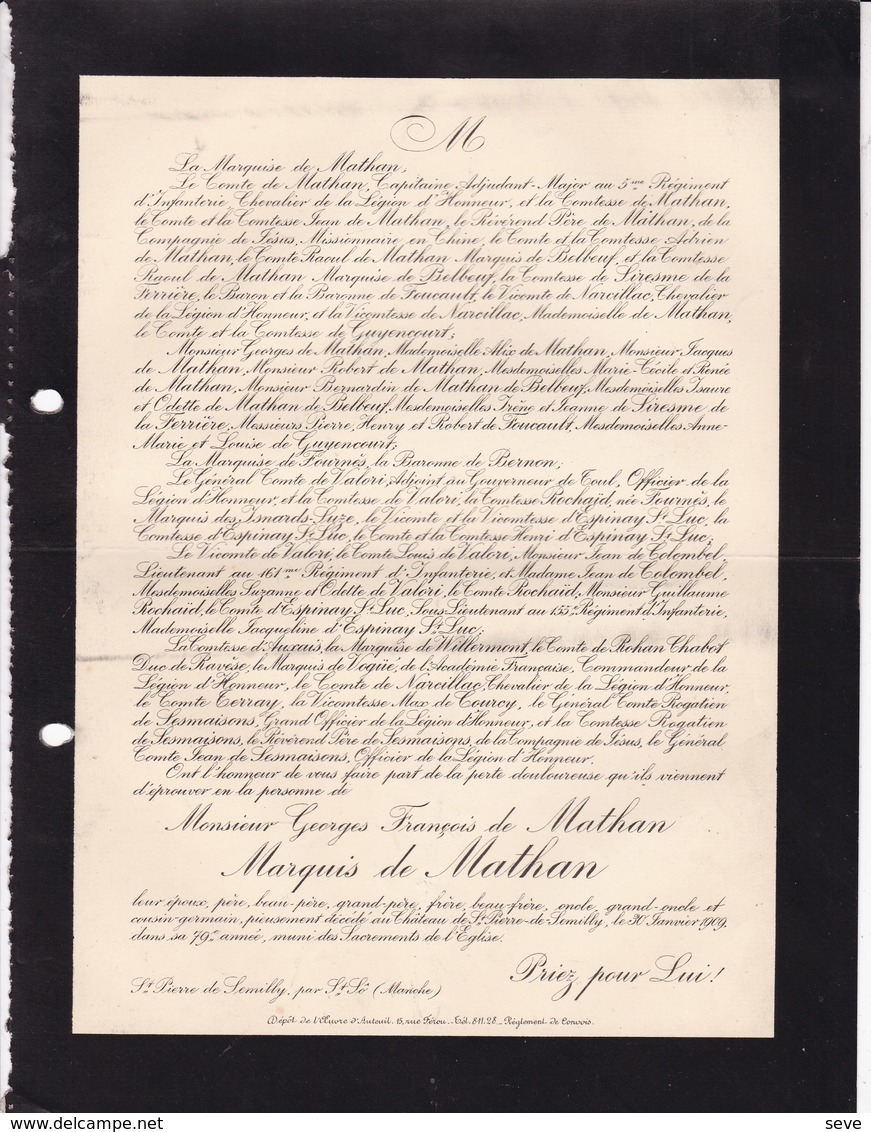 M
La Marquise de Mathan;
Le Comte de Mathan, Capitaine Adjudant-Major au 5me Régiment
d'Infanterie, Chevalier de la Légion d'Honneur, et la Comtesse de Mathan,
le Comte et la Comtesse Jean de Mathan, le Révérend Père de Mathan, de la
Compagnie de Jésus, Missionnaire en Chine, le Comte et la Comtesse Adrien
de Mathan, le Comte Raoul de Mathan Marquis de Belbeuf, et la Comtesse
Raoul de Mathan Marquise de Belbeuf, la Comtesse de Siresme de la
Ferrière, le Baron et la Baronne de Foucault, le Vicomte de Narcillac, Chevalier
de la Légion d'Honneur, et la Vicomtesse de Narcillac, Mademoiselle de Mathan,
le Comte et la Comtesse de Guyencourt;
Monsieur Georges de Mathan, Mademoiselle Alix de Mathan, Monsieur Jacques
de Mathan, Monsieur Robert de Mathan, Mesdemoiselles Marie-Cécile et Renée
de Mathan, Monsieur Bernardin de Mathan de Belbeuf, Mesdemoiselles Isaure
et Odette de Mathan de Belbeuf, Mesdemoiselles Irène et Jeanne de Siresme de
la Ferrière, Messieurs Pierre, Henry et Robert de Foucault, Mesdemoiselles Anne-
Marie et Louise de Guyencourt;
La Marquise de Fournès, la Baronne de Bernon;
Le Général Comte de Valori, Adjoint au Gouverneur de Toul, Officier de la
Légion d'Honneur, et la Comtesse de Valori, la Comtesse Rochaïd, née Fournès, le
Marquis des Isnards-Suze, le Vicomte et la Vicomtesse d'Espinay St Luc, la
Comtesse d'Espinay St Luc, le Comte et la Comtesse Henri d'Espinay St Luc;
Le Vicomte de Valori, le Comte Louis de Valori, Monsieur Jean de Colombel,
Lieutenant au 161me Régiment d'Infanterie, et Madame Jean de Colombel,
Mesdemoiselles Suzanne et Odette de Valori, le Comte Rochaïd, Monsieur Guillaume
Rochaïd, le Comte d'Espinay St Luc, Sous-Lieutenant au 155e Régiment d'Infanterie,
Mademoiselle Jacqueline d'Espinay St Luc;
La Comtesse d'Auxais, la Marquise de Willermont, le Comte de Rohan Chabot
Duc de Ravèse, le Marquis de Vogüé, de l'Académie Française, Commandeur de la
Légion d'Honneur, le Comte de Narcillac, Chevalier de la Légion d'Honneur,
le Comte Terray, la Vicomtesse Max de Courcy, le Général Comte Rogatien
de Sesmaisons, Grand Officier de la Légion d'Honneur, et la Comtesse Rogatien
de Sesmaisons, le Révérend Père de Sesmaisons, de la Compagnie de Jésus, le Général
Comte Jean de Sesmaisons, Officier de la Légion d'Honneur.
Ont l'honneur de vous faire part de la perte douloureuse qu'ils viennent
d'éprouver en la personne de
Monsieur Georges François de Mathan
Marquis de Mathan
leur époux, père, beau-père, grand-père, frère, beau-frère, oncle, grand-oncle et
cousin-germain, pieusement décédé au Château de St Pierre-de-Semilly, le 30 Janvier 1909,
dans sa 79me année, muni des Sacrements de l'Eglise.
Priez pour Lui!
St Pierre de Semilly, par St Lô (Manche)
Dépôt de l'Œuvre d'Auteuil, 15, rue Férou._Tél. 811.28_Règlement de Convois.
seve